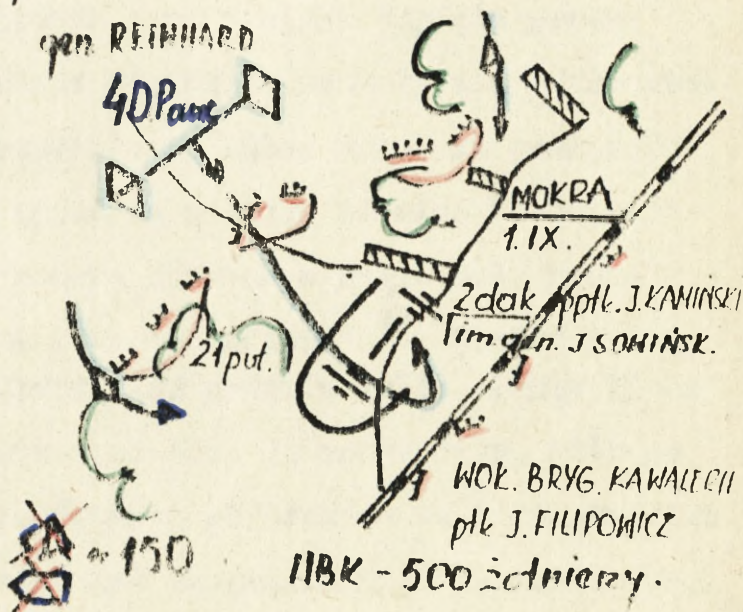 gen REINHARD
4DPanc
MOKRA
1.IX.
2dak ppłk. J.KAMIŃSKI
im gen. J SOWIŃSK.
21 puł.
WOŁ. BRYG. KAWALERII
płk J. FILIPOWICZ
~ 150
- 500 żołnierzy.